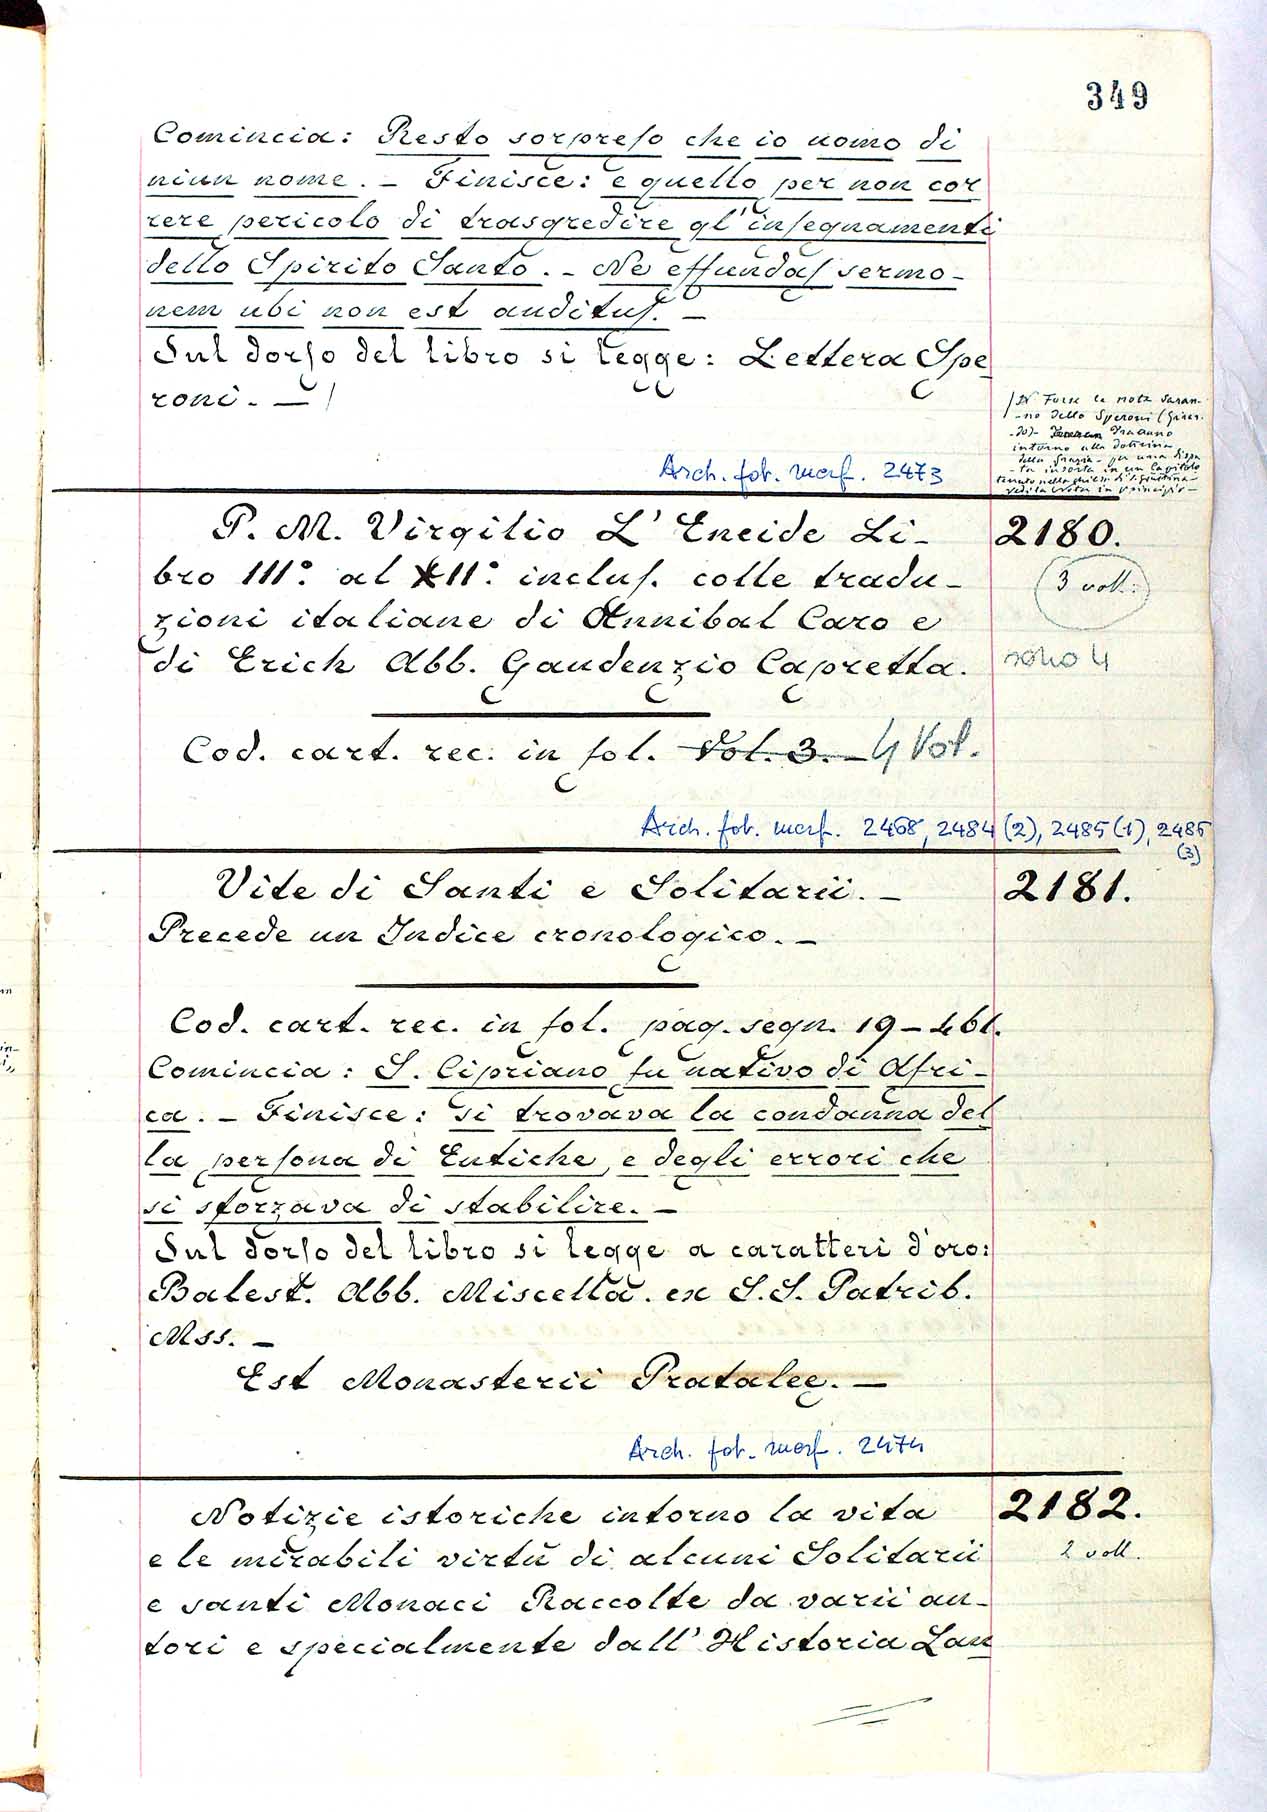 349
Comincia: Resto sorpreso che io uomo di
niun nome. - Finisce: e quello per non cor
rere pericolo di trasgredire gl'insegnamenti
dello Spirito Santo. - Ne effundas sermo-
nem ubi non est auditus. -
Sul dorso del libro si legge: Lettera Spe
roni. - /
/ N Forse le note saran-
-no dello Speroni (Gaer-
-do)- Trattano
intorno alla dottrina
della Grazia - per una dispu
-ta insorta in un Capitolo
tenuto nella chiesa di S. Giustina -
vedi la Nota in principio -
Arch. fot. morf. 2473
P. M. Virgilio L'Eneide Li-
2180.
bro III° al XII° inclus. colle tradu-
3 voll.
zioni italiane di Annibal Caro e
di Erich Abb. Gaudenzio Capretta.
sono 4
Cod. cart. rec. in fol. Vol. 3. - 4 Vol.
Arch. fot. morf. 2468, 2484 (2), 2485 (1), 2486
(3)
Vite di Santi e Solitarii. -
2181.
Precede un Indice cronologico. -
Cod. cart. rec. in fol. pag. segn. 19-461.
Comincia: S. Cipriano fu nativo di Afri-
ca. - Finisce: si trovava la condanna del
la persona di Eutiche, e degli errori che
si sforzava di stabilire. -
Sul dorso del libro si legge a caratteri d'oro:
Balest. Abb. Miscella. ex S.S. Patrib.
Mss. -
Est Monasterii Pratalee. -
Arch. fot. morf. 2474
Notizie istoriche intorno la vita
2182.
e le mirabili virtù di alcuni Solitarii
2 voll.
e santi Monaci Raccolte da varii au-
tori e specialmente dall'Historia Lau